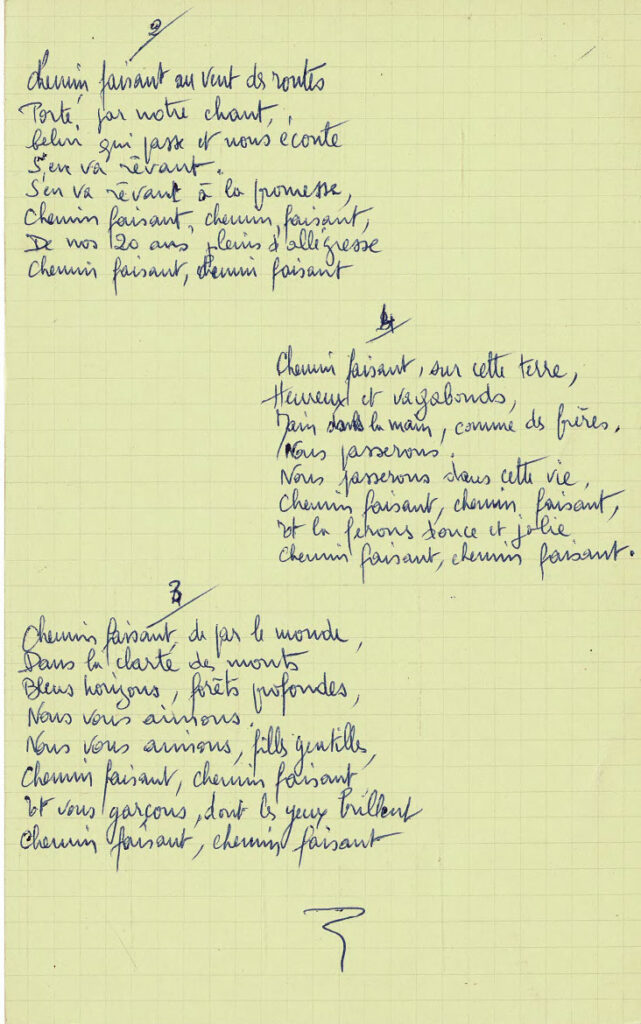 2
Chemin faisant au vent des routes
Porté, par notre chant,
Celui qui passe et nous écoute
S'en va rêvant.
S'en va rêvant à la promesse,
Chemin faisant, chemin, faisant,
De nos 20 ans pleins d'allégresse
Chemin faisant, chemin faisant
4
Chemin faisant, sur cette terre,
Heureux et vagabonds,
Main dans la main, comme des frères.
Nous passerons.
Nous passerons dans cette vie,
Chemin faisant, chemin faisant,
Et la ferons douce et jolie
Chemin faisant, chemin faisant.
3
Chemin faisant, de par le monde,
Dans la clarté des monts
Bleus horizons, forêts profondes,
Nous vous aimons.
Nous vous aimons, filles gentilles,
Chemin faisant, chemin faisant
Et vous garçons, dont les yeux brillent
Chemin faisant, chemin faisant